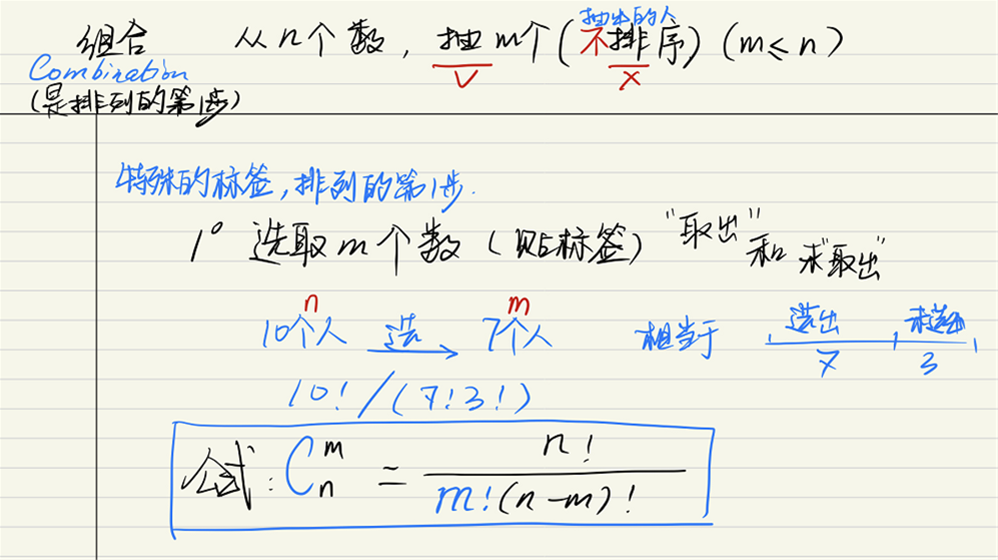 抽出的人
组合 从n个数，抽m个(不排序)(m≤n)
Combination ∨ ×
(是排列的第1步)
特殊的标签，排列的第1步.
1° 选取m个数(贴标签)"取出"和"未取出"
n m
10个人 选 7个人 相当于 选出 未选出
7 3
10!/(7!3!)
公式: C_n^m = n! / m!(n-m)!